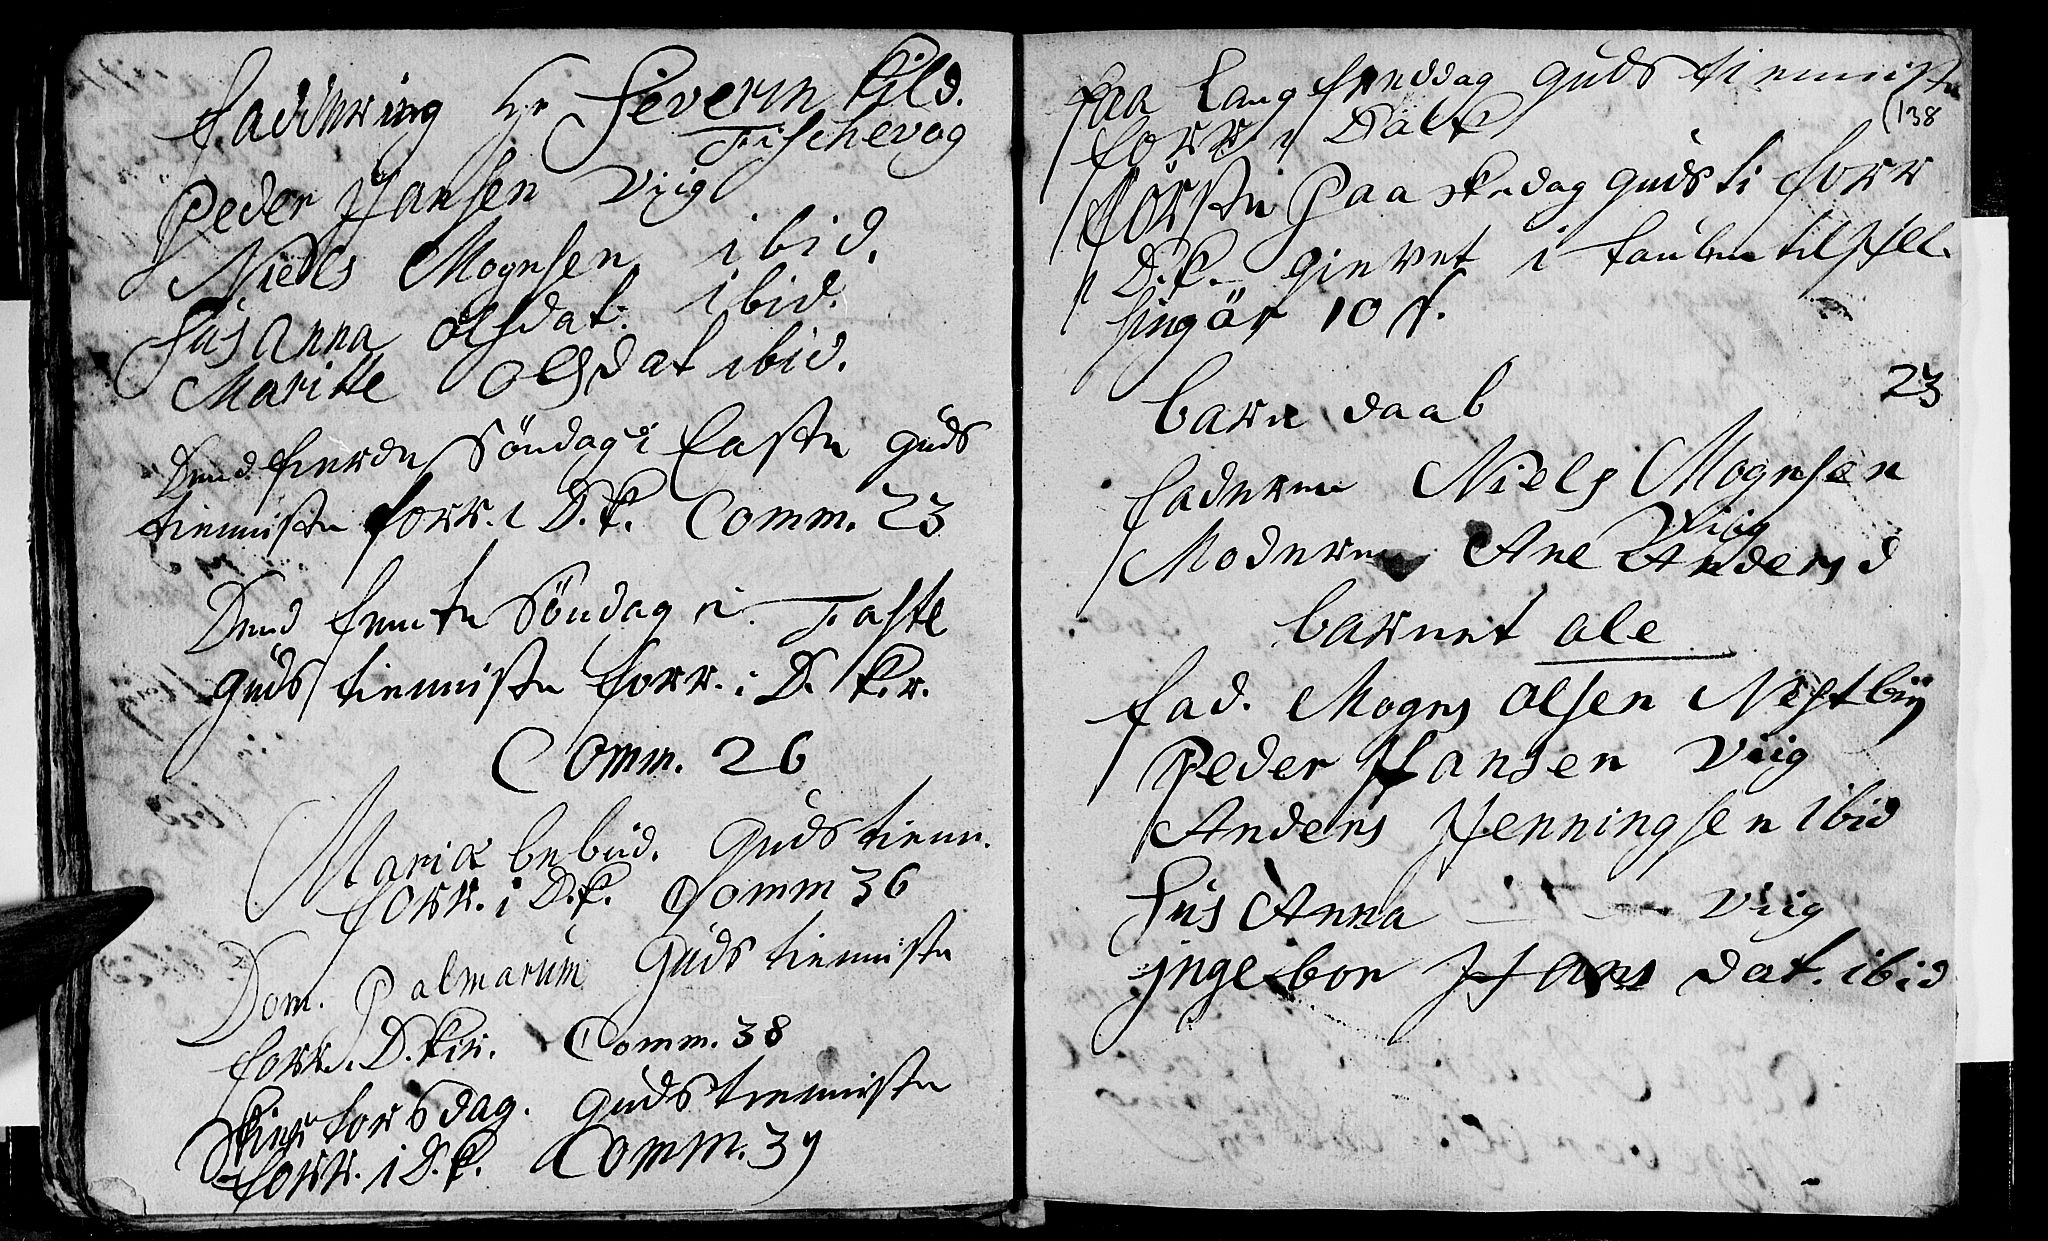 Faddering Hr Severin Kild.
Fischevog
Peder Hansen Viig
Niels Mognsen ibid.
Susanna Olsdat. ibid.
Maritte Olsdat ibid.
Dend fierde Söndag i Faste Guds
tienniste forr. i D.k. Comm. 23
Dend femte Söndag i Faste
Guds tienniste forr. i D. k.r.
Comm. 26
Mariæ bebud. Guds tienn.
forr. i D.k. Comm 36
Dom. Palmarum Guds tienniste
forr. i D. kir. Comm. 38
Skiertorsdag. Guds tienniste
forr. i D.k. Comm. 39
Paa Langfreddag Guds tienniste
138
forr i
förste Paaskedag Guds ti forr
i D.k. Gievet i
10 s.
23
barn daab
faderen Niels Mognsen
Viig
Moderen Ane Andersd
barnet ole
fad. Mogns Olsen Nestbÿ
Peder Hansen Viig
Anders Henningsen ibid
Sus Anna — — Viig
jngebor Hans dat. ibid